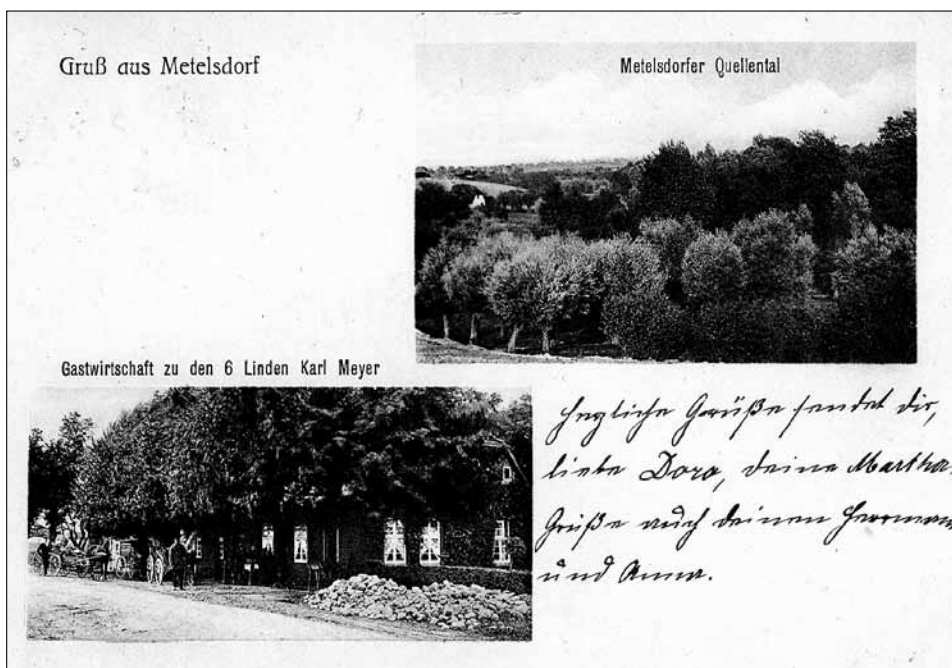 Gruß aus Metelsdorf
Metelsdorfer Quellental
Gastwirtschaft zu den 6 Linden Karl Meyer
Herzliche Grüße sendet dir,
liebe Doro, deine Martha.
Grüße auch deinen Herrmann
und Anna.